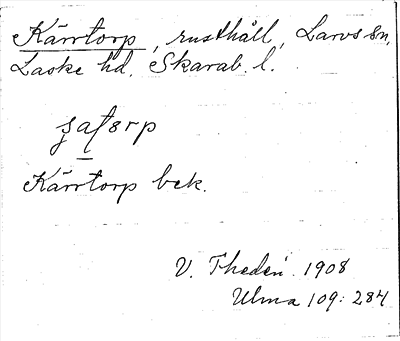 Kärrtorp, rusthåll, Larvs sn,
Laske hd. Skarab. l.
Kärrtorp bek.
V. Thedén 1908
Ulma 109: 284